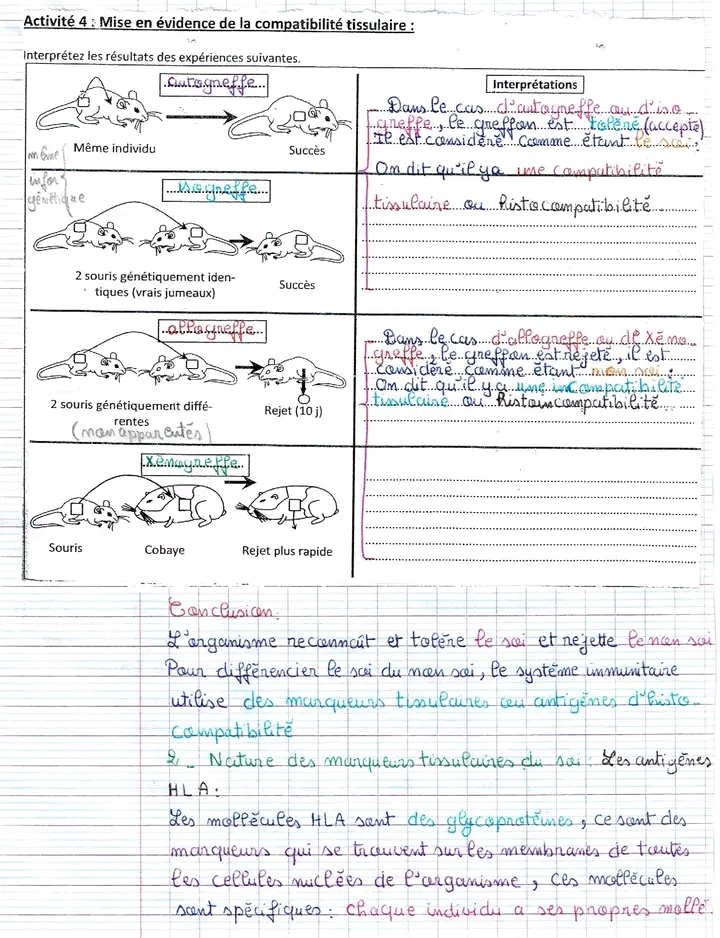 Activité 4 : Mise en évidence de la compatibilité tissulaire :
Interprétez les résultats des expériences suivantes.
autogreffe
Même individu
Succès
même
infor
génétique
isogreffe
2 souris génétiquement iden-
tiques (vrais jumeaux)
Succès
allogreffe
2 souris génétiquement diffé-
rentes
(non apparentés)
Rejet (10 j)
Xénogreffe
Souris
Cobaye
Rejet plus rapide
Interprétations
Dans le cas d'autogreffe ou d'iso
greffe, le greffon est toléré (accepté)
Il est considéré comme étant le soi :
On dit qu'il y a une compatibilité
tissulaire ou histocompatibilité
Dans le cas d'allogreffe ou de Xéno
greffe, le greffon est rejeté, il est
considéré comme étant non soi :
On dit qu'il y a une incompatibilité
tissulaire ou Histoincompatibilité
Conclusion:
L'organisme reconnaît et tolère le soi et rejette le non soi
Pour différencier le soi du non soi, le système immunitaire
utilise des marqueurs tissulaires ou antigènes d'histo-
compatibilité
2. Nature des marqueurs tissulaires du soi : Les antigènes
HLA :
Les mollécules HLA sont des glycoprotéines, ce sont des
marqueurs qui se trouvent sur les membranes de toutes
les cellules nuclées de l'organisme, ces mollécules
sont spécifiques : chaque individu a ses propres mollé.